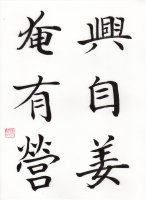 興自姜
奄有營